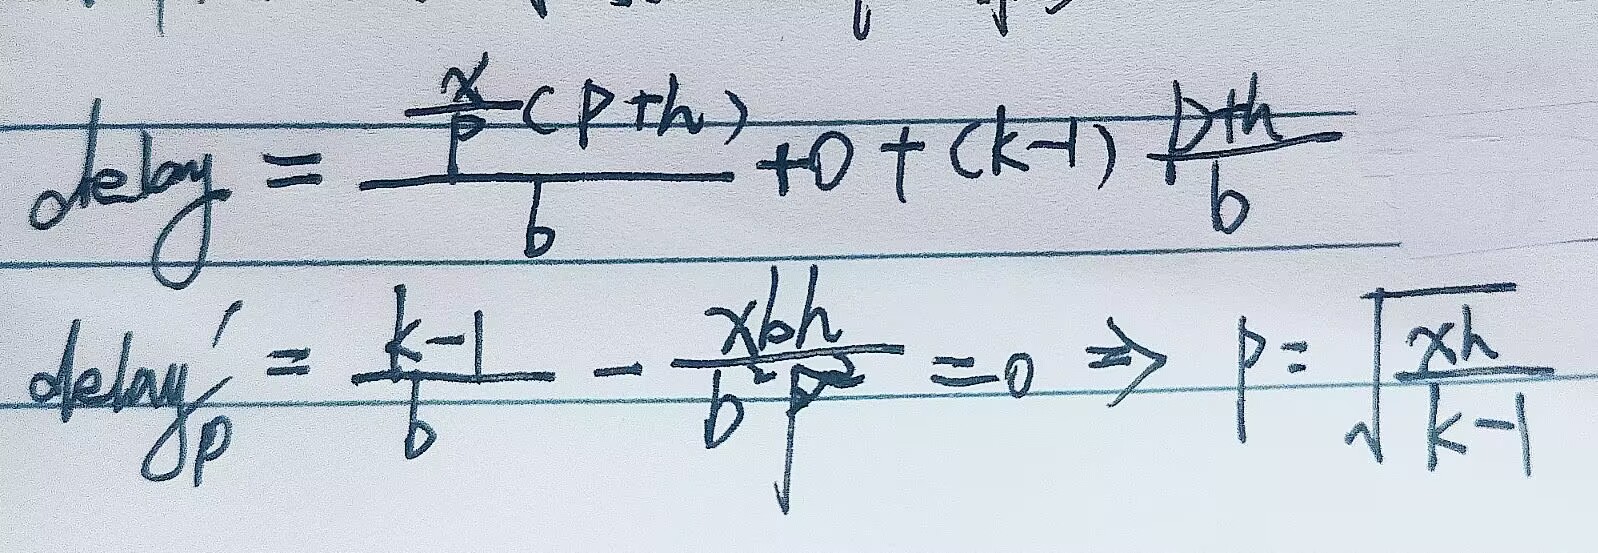 delay = \frac{\frac{x}{p}(p+h)}{b} + 0 + (k-1) \frac{p+h}{b}
delay'_p = \frac{k-1}{b} - \frac{xbh}{b^2p^2} = 0 ⇒ p = \sqrt{\frac{xh}{k-1}}